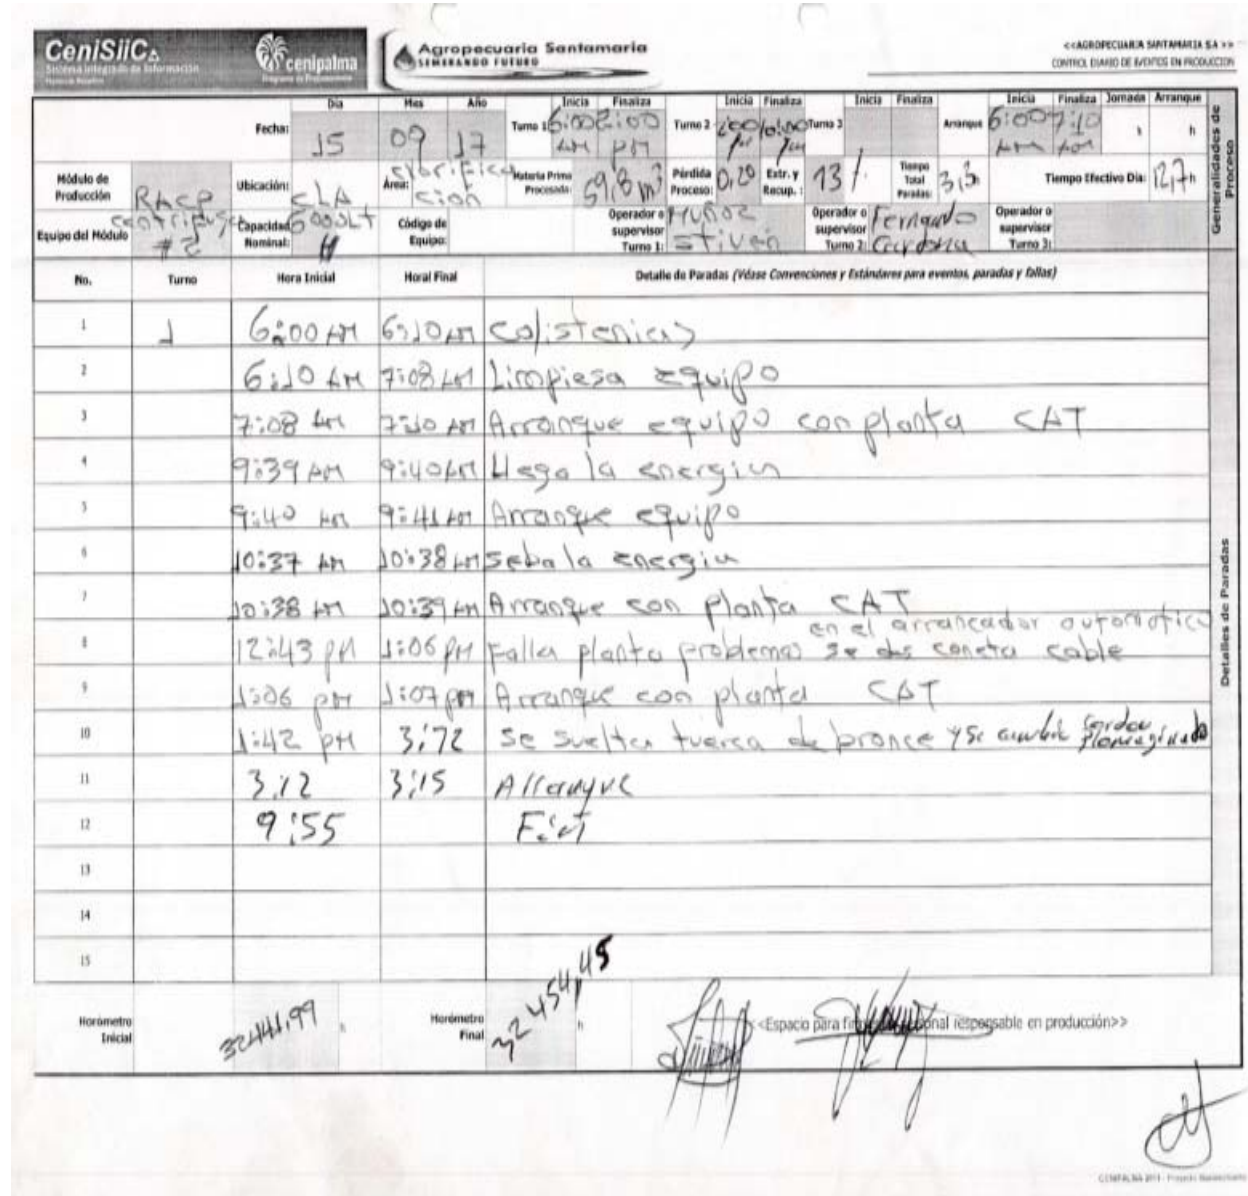 CeniSiiCA
Sistema Integrado de Información
cenipalma
Agropecuaria Santamaria
SEMBRANDO FUTURO
<<AGROPECUARIA SANTAMARIA SA >>
CONTROL DIARIO DE EVENTOS EN PRODUCCION
Dia Mes Año Inicia Finaliza Inicia Finaliza Inicia Finaliza Inicia Finaliza Jornada Arranque
Fecha: 15 09 17 Turno 1 6:00 AM 2:00 PM Turno 2 2:00 pm 10:00 pm Turno 3 Arranque 6:00 AM 7:10 AM h h
Módulo de Producción RACP Ubicación: CLA Área: Materia Prima Procesada: 59,8 m³ Pérdida Proceso: 0,20 Extr. y Recup. : 13 /. Tiempo Total Paradas: 3,3 Tiempo Efectivo Dia: 12,7 h
Equipo del Módulo centrifuga #2 Capacidad Nominal: 6000Lt H Código de Equipo: Operador o supervisor Turno 1: Muñoz Stiven Operador o supervisor Turno 2: Fernando Cardona Operador o supervisor Turno 3:
Generalidades de Proceso
No. Turno Hora Inicial Horal Final Detalle de Paradas (Véase Convenciones y Estándares para eventos, paradas y fallas)
1 1 6:00 AM 6:10 AM calistenicas
2 6:10 AM 7:08 AM Limpiesa equipo
3 7:08 AM 7:10 AM Arranque equipo con planta CAT
4 9:39 AM 9:40 AM llega la energia
5 9:40 AM 9:41 AM Arranque equipo
6 10:37 AM 10:38 AM seba la energia
7 10:38 AM 10:39 AM Arranque con planta CAT
en el arrancador automatico
8 12:43 PM 1:06 PM Falla planta problemas se des coneta cable
9 1:06 pm 1:07 pm Arranque con planta CAT
10 1:42 pm 3:12 se suelta tuerca de bronce y se cambia
11 3:12 3:15 Arranque
12 9:55
13
14
15
Detalles de Paradas
Horómetro Inicial 32441,99 h Horómetro Final 32454,45 h <<Espacio para responsable en producción>>